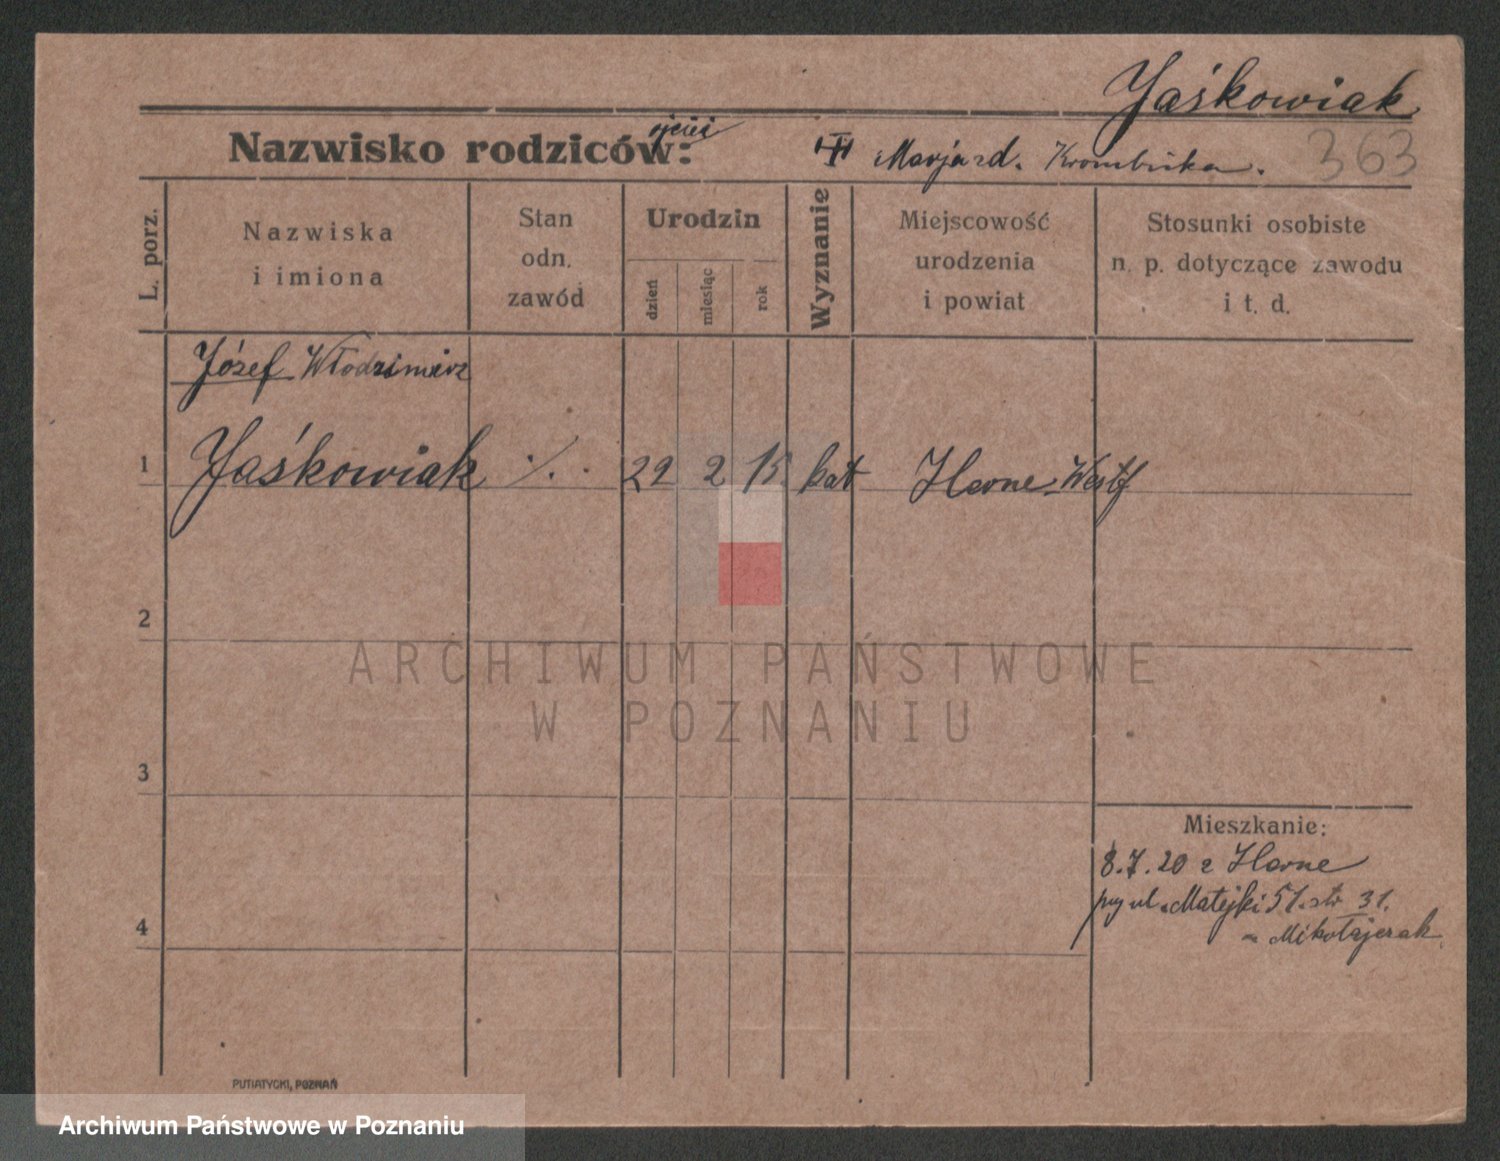 Jaśkowiak
Nazwisko rodziców:
Marja zd.
363
L. porz.
Nazwiska
i imiona
Stan
odn.
zawód
Urodzin
dzień
miesiąc
rok
Wyznanie
Miejscowość
urodzenia
i powiat
Stosunki osobiste
n. p. dotyczące zawodu
i t. d.
Józef Włodzimierz
1 Jaśkowiak ·/. · 22 2 15 kat Herne Westf
2
ARCHIWUM PAŃSTWOWE
W POZNANIU
3
Mieszkanie:
8.7.20 z Herne
ul. Matejki 51. str 31.
Mikołajczak
4
PUTIATYCKI, POZNAŃ
Archiwum Państwowe w Poznaniu